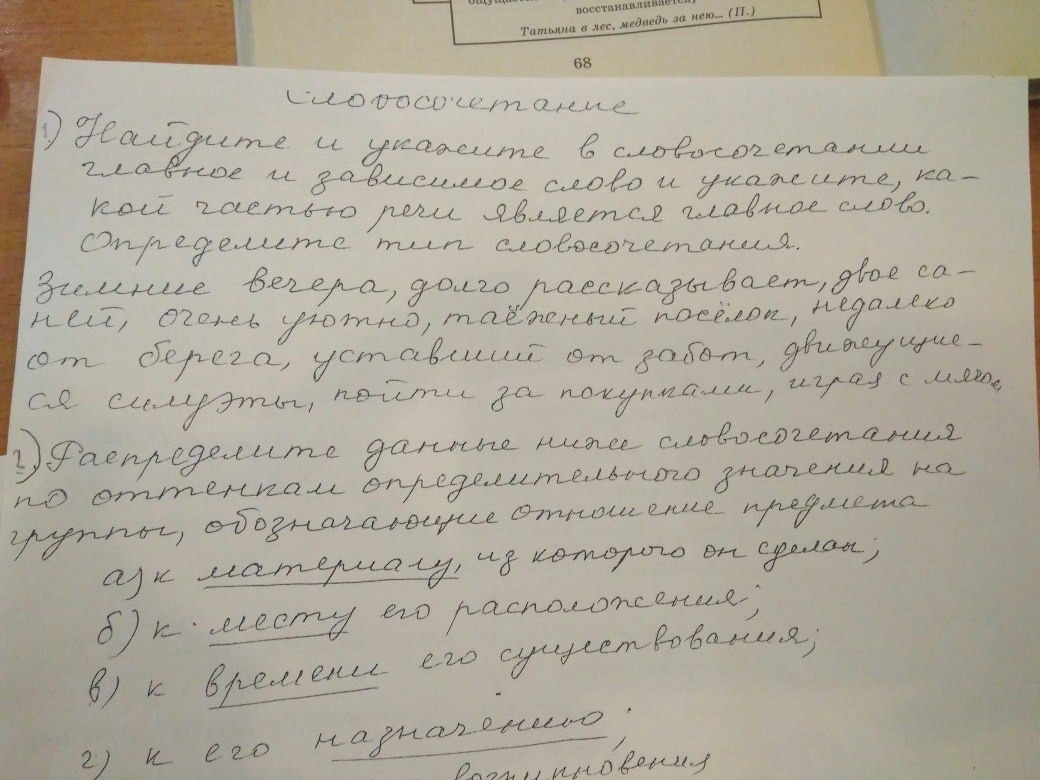 восстанавливается,
Татьяна в лес, медведь за нею... (П.)
68
Словосочетание
1) Найдите и укажите в словосочетании
главное и зависимое слово и укажите, ка-
кой частью речи является главное слово.
Определите тип словосочетания.
Зимние вечера, долго рассказывает, двое са-
ней, очень уютно, таёжный посёлок, недалеко
от берега, уставший от забот, движущие-
ся силуэты, пойти за покупками, играя с мячом,
2) Распределите данные ниже словосочетания
по оттенкам определительного значения на
группы, обозначающие отношение предмета
а) к материалу, из которого он сделан;
б) к месту его расположения;
в) к времени его существования;
г) к его назначению;
возникновения